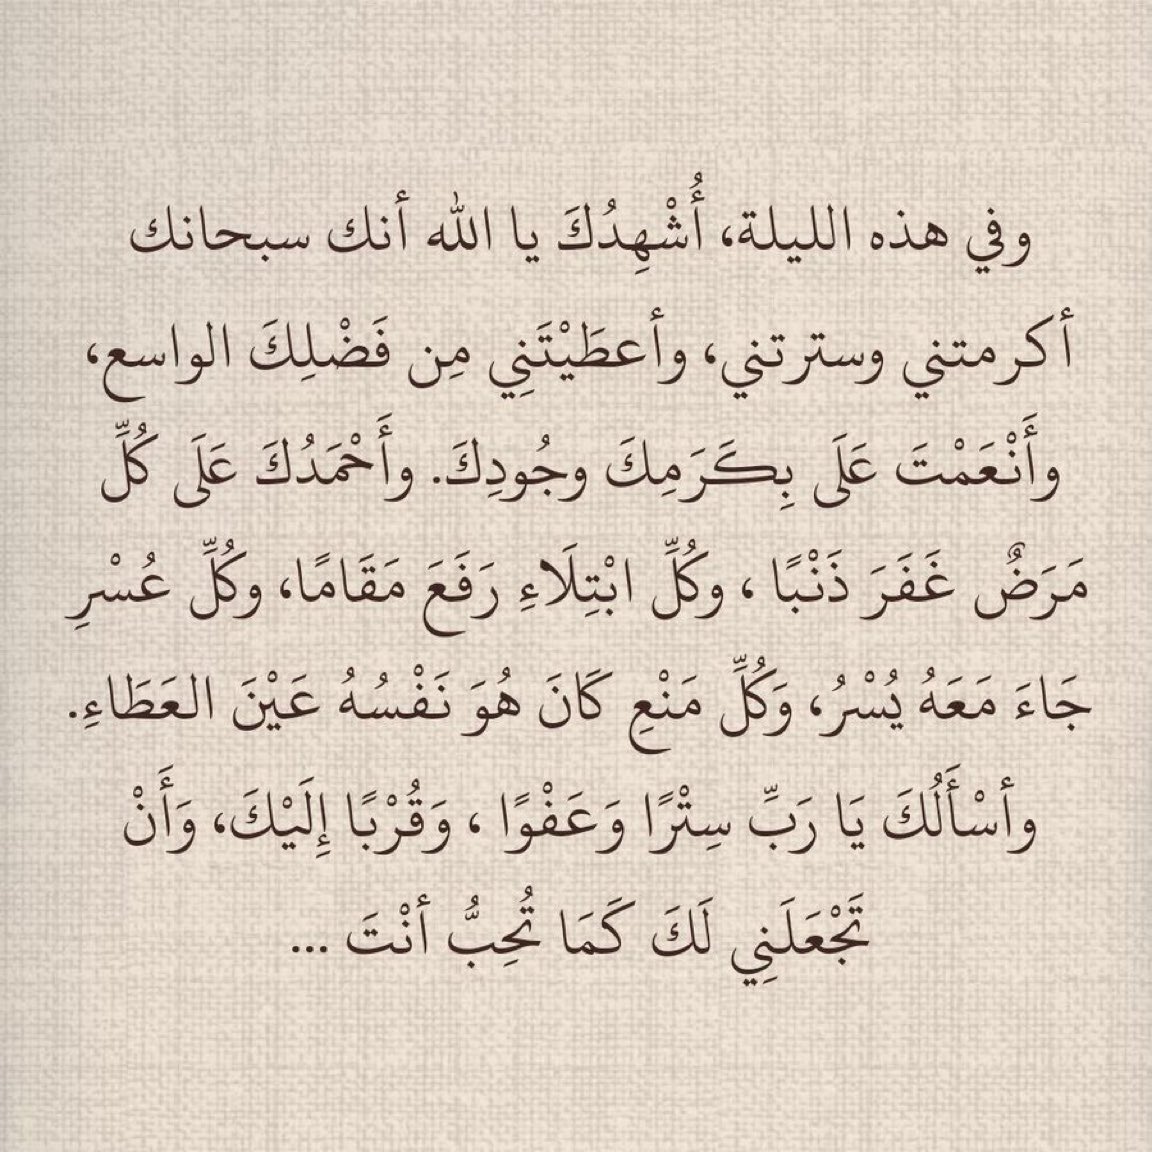 وفي هذه الليلة، أُشْهِدُكَ يا الله أنك سبحانك
أكرمتني وسترتني، وأعطَيْتَنِي مِن فَضْلِكَ الواسع،
وأَنْعَمْتَ عَلَى بِكَرَمِكَ وجُودِكَ. وأَحْمَدُكَ عَلَى كُلِّ
مَرَضٌ غَفَرَ ذَنْبًا ، وكُلِّ ابْتِلَاءِ رَفَعَ مَقَامًا، وكُلِّ عُسْرِ
جَاءَ مَعَهُ يُسْرُ، وَكُلِّ مَنْعِ كَانَ هُوَ نَفْسُهُ عَيْنَ العَطَاءِ.
وأسْأَلُكَ يَا رَبِّ سِتْرًا وَعَفْوًا ، وَقُرْبًا إِلَيْكَ، وَأَنْ
تَجْعَلَنِي لَكَ كَمَا تُحِبُّ أنْتَ ...